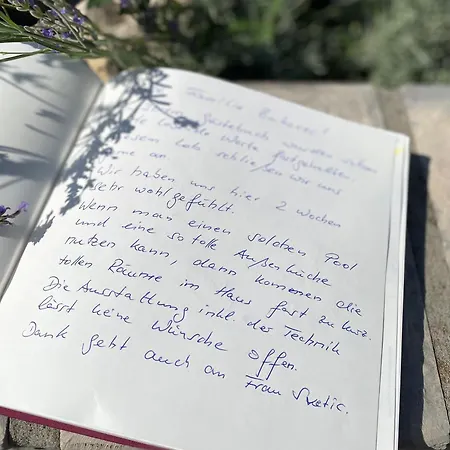 Familie
Gästebuch wurden schon
Worte festgehalten.
diesem Lob schließen wir uns
an
Wir haben uns hier 2 Wochen
sehr wohlgefühlt.
Wenn man einen solchen Pool
und eine so tolle Außenküche
nutzen kann, dann kommen die
tollen Räume im Haus fast zu kurz.
Die Ausstattung inkl. der Technik
lässt keine Wünsche offen.
Dank geht auch an Frau